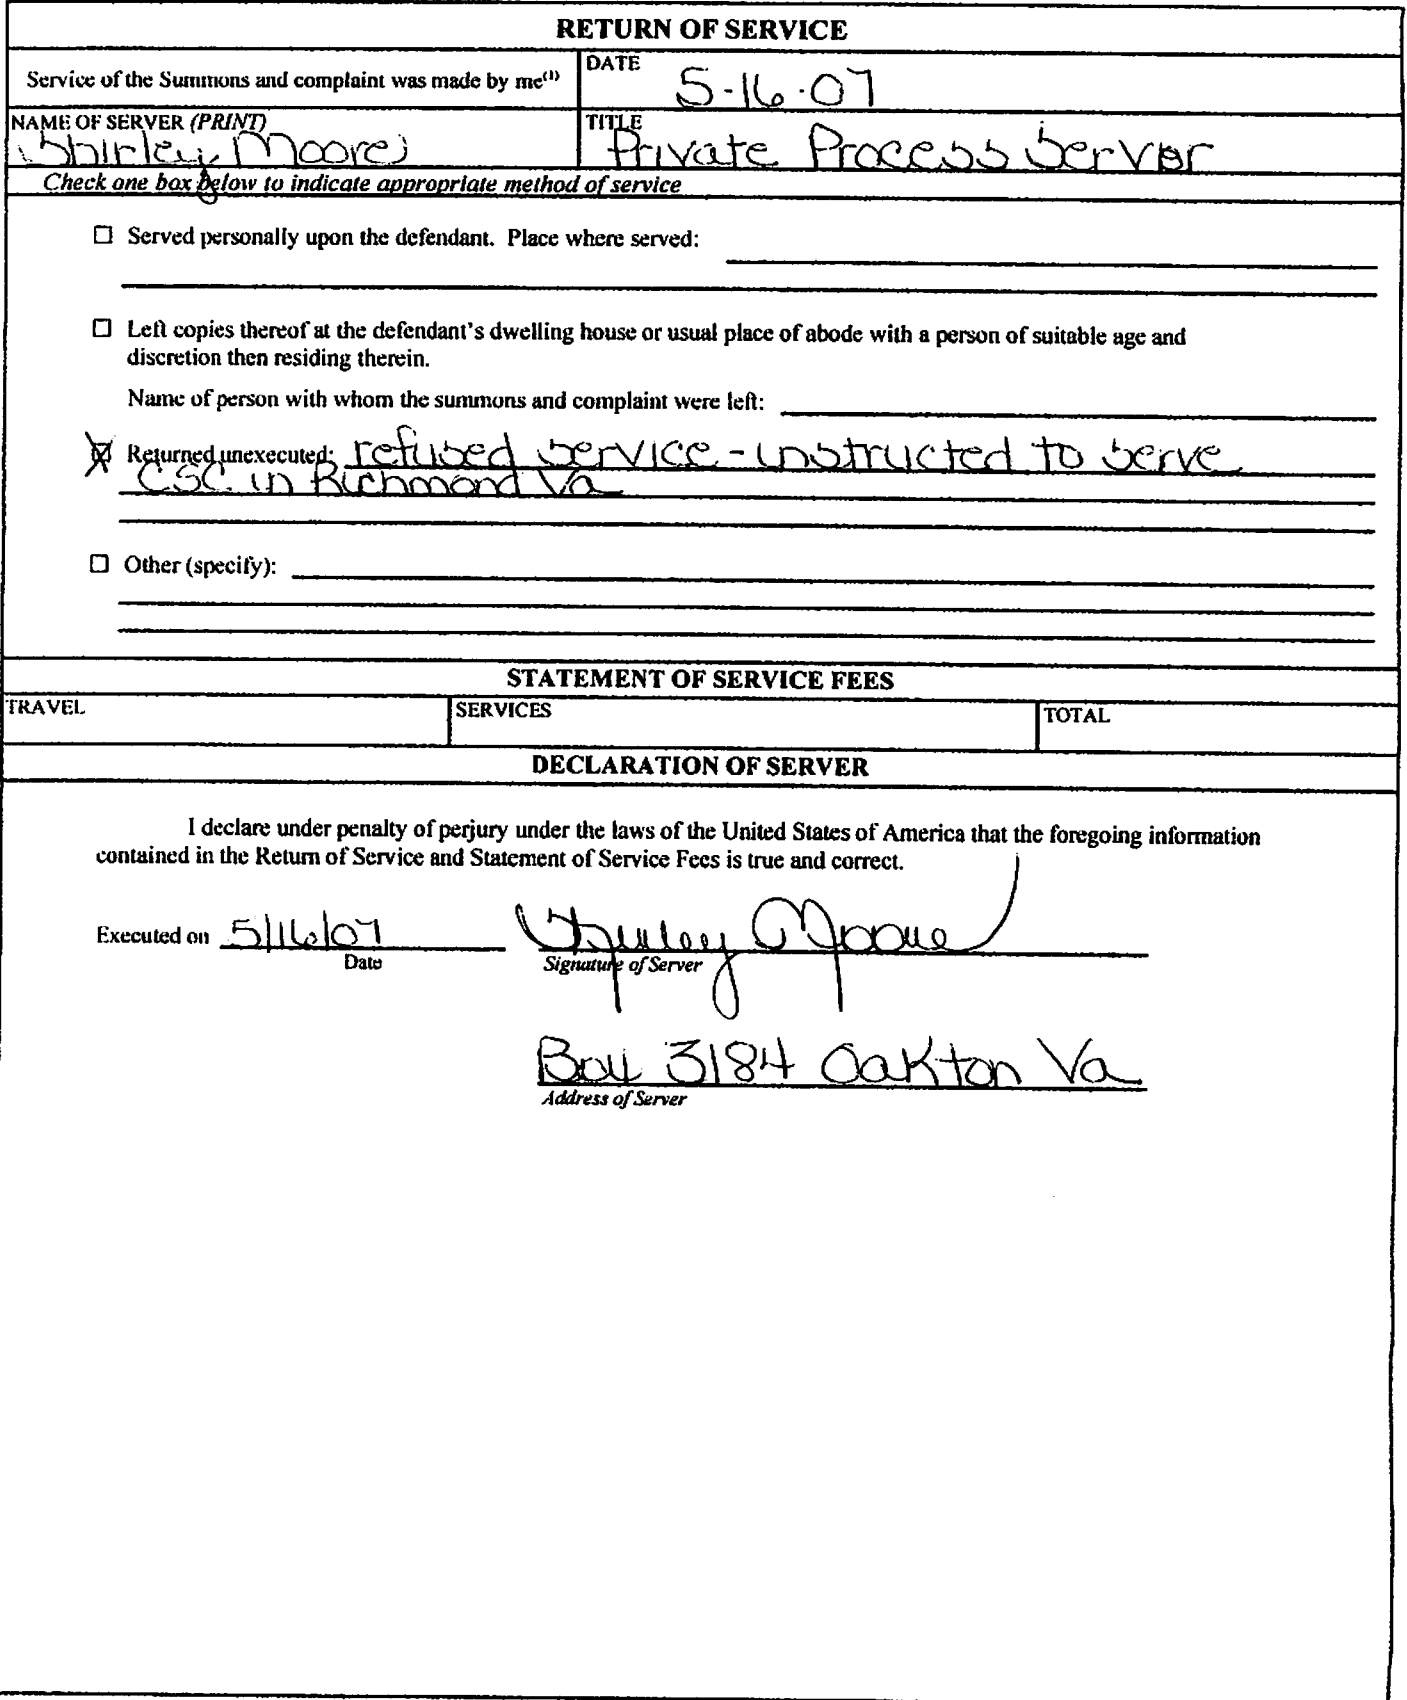 RETURN OF SERVICE
Service of the Summons and complaint was made by me(1)
DATE
5-16-07
NAME OF SERVER (PRINT)
Shirley Moore
TITLE
Private Process Server
Check one box below to indicate appropriate method of service
☐ Served personally upon the defendant. Place where served:
☐ Left copies thereof at the defendant's dwelling house or usual place of abode with a person of suitable age and
discretion then residing therein.
Name of person with whom the summons and complaint were left:
☒ Returned unexecuted: refused service - instructed to serve
CSC in Richmond Va
☐ Other (specify):
STATEMENT OF SERVICE FEES
TRAVEL
SERVICES
TOTAL
DECLARATION OF SERVER
I declare under penalty of perjury under the laws of the United States of America that the foregoing information
contained in the Return of Service and Statement of Service Fees is true and correct.
Executed on 5/16/07 Shirley Moore
Date
Signature of Server
Box 3184 Oakton Va
Address of Server